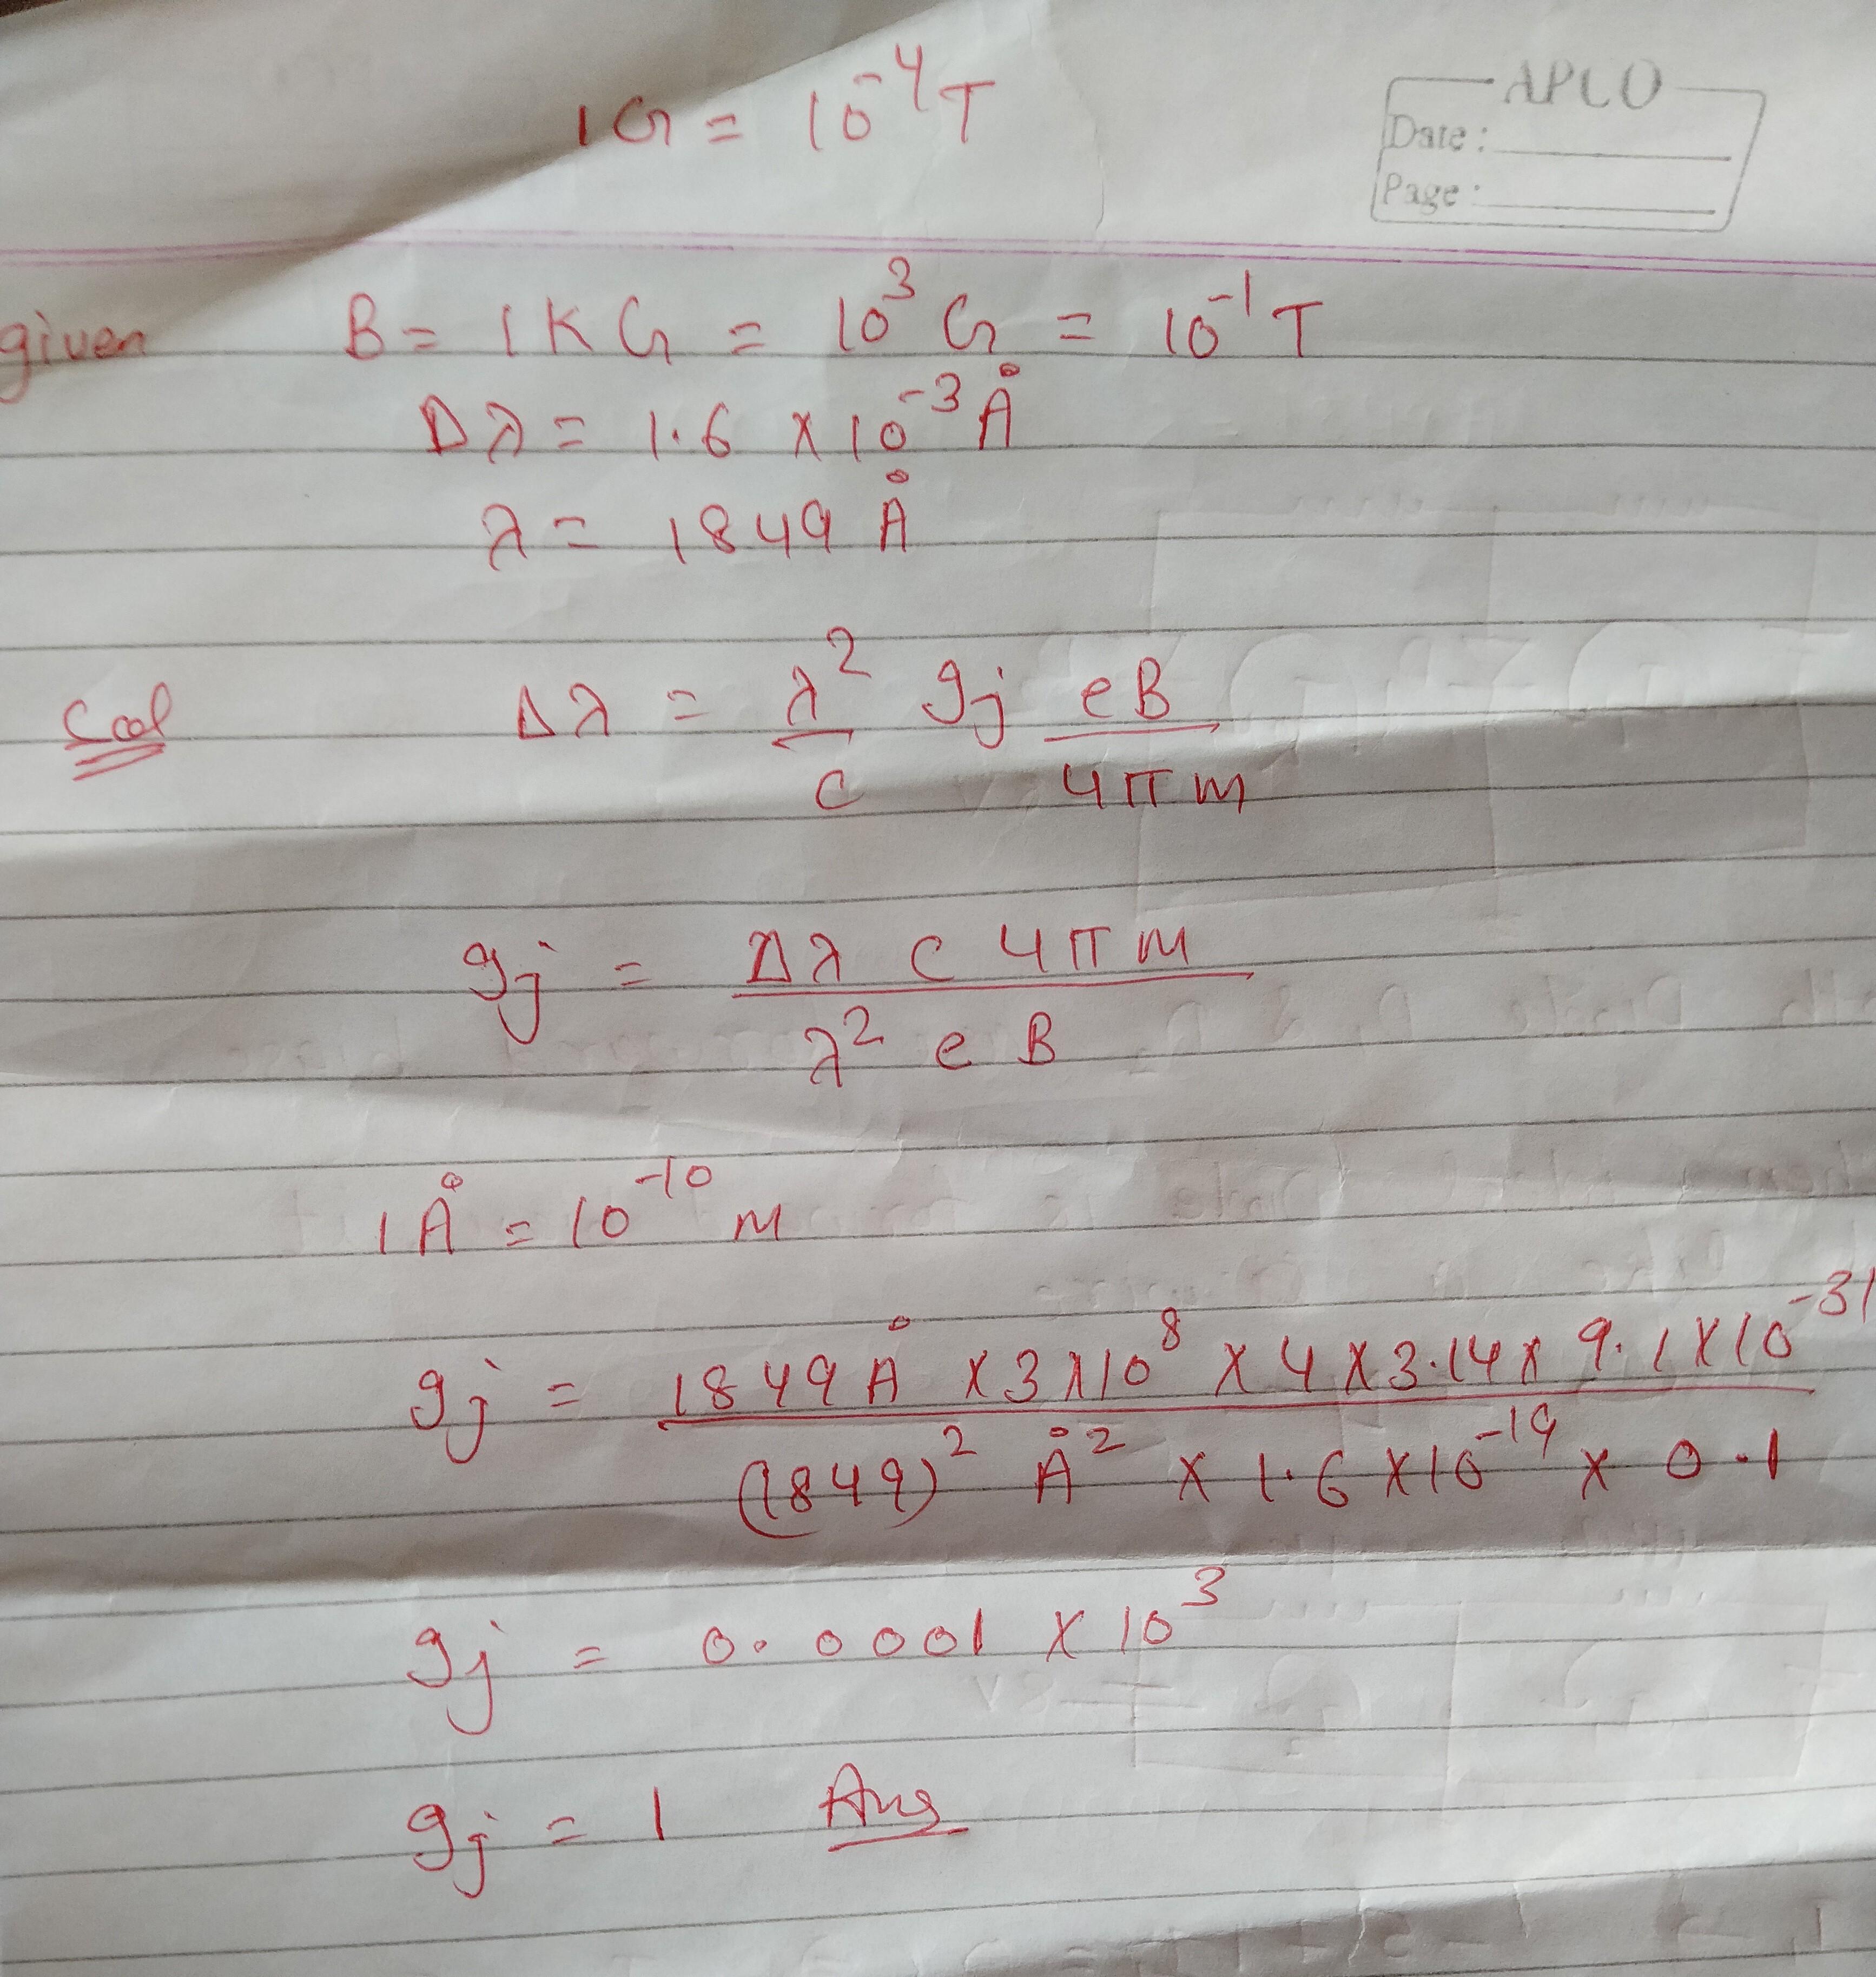 1G = 10⁻⁴T
APCO
Date :
Page :
given B = 1KG = 10³ G = 10⁻¹T
Δλ = 1.6 x 10⁻³ Å
λ = 1849 Å
Δλ = λ²/c gj eB/4πm
gj = Δλ c 4πm / λ² e B
1 Å = 10⁻¹⁰ m
gj = 1849 Å x 3x10⁸ x 4 x 3.14 x 9.1x10⁻³¹ / (1849)² Å² x 1.6 x10⁻¹⁹ x 0.1
gj = 0.0001 x 10³
gj = 1 Ans